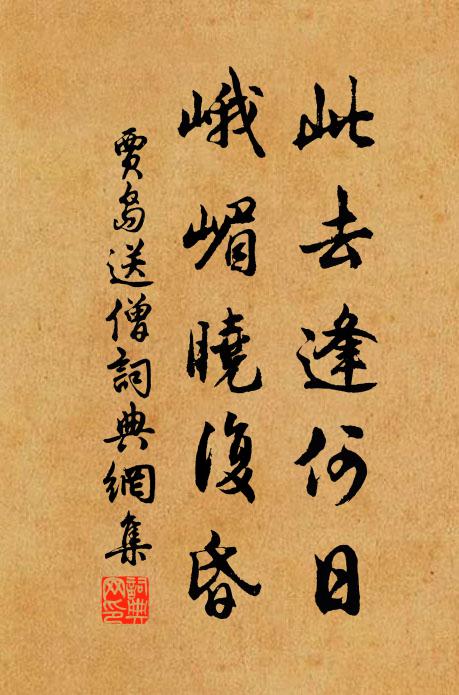 此去逢何日
峨嵋曉復昏
賈島送僧詞典網集
詞典
网印